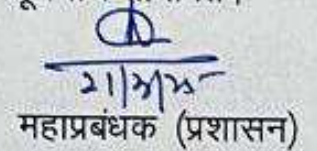 21/3/25
महाप्रबंधक (प्रशासन)